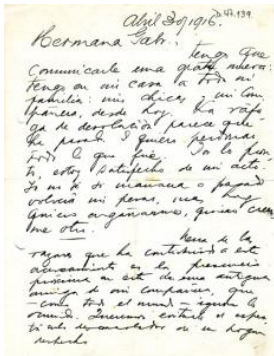 Abril 30/1916.
Hermana Gabr.:
tengo que
comunicarle una grata nueva:
tengo en mi casa a toda mi
familia: mis chicos y mi com-
pañera, desde hoy. La ráfa-
ga de desolación parece que
ha pasado. Quiero perdonar
todo lo que fué. Yo lo pron-
to, estoy satisfecho de mi acto.
Si no sé si mañana o pasado
volverán mis penas, mas hoy
quiero engañarme, quiero creer-
me otro.
de las
razones que ha contribuido a este
es la presencia
próxima en este de una antigua
amiga de mi compañera, que
—como todo el mundo— ignora lo
ocurrido. Queremos evitarle el espec-
táculo desconsolador de un hogar
deshecho